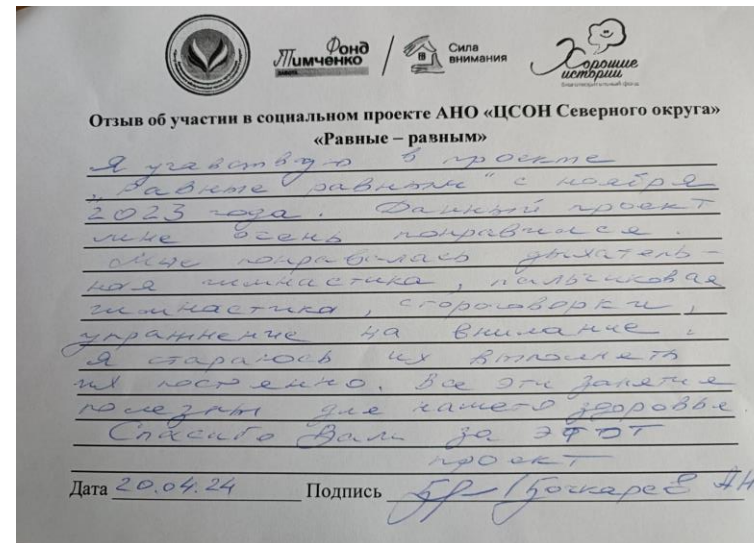 Фонд
Тимченко
забота
Сила
внимания
Хорошие
истории
Благотворительный фонд
Отзыв об участии в социальном проекте АНО «ЦСОН Северного округа»
«Равные – равным»
Я участвую в проекте
"Равные равным" с ноября
2023 года. Данный проект
мне очень понравился.
Мне понравилась дыхатель-
ная гимнастика, пальчиковая
гимнастика, скороговорки,
упражнение на внимание.
Я стараюсь их выполнять
их постоянно. Все эти занятия
полезны для нашего здоровья.
Спасибо Вам за этот
проект
Дата 20.04.24 Подпись Бочкарев АН